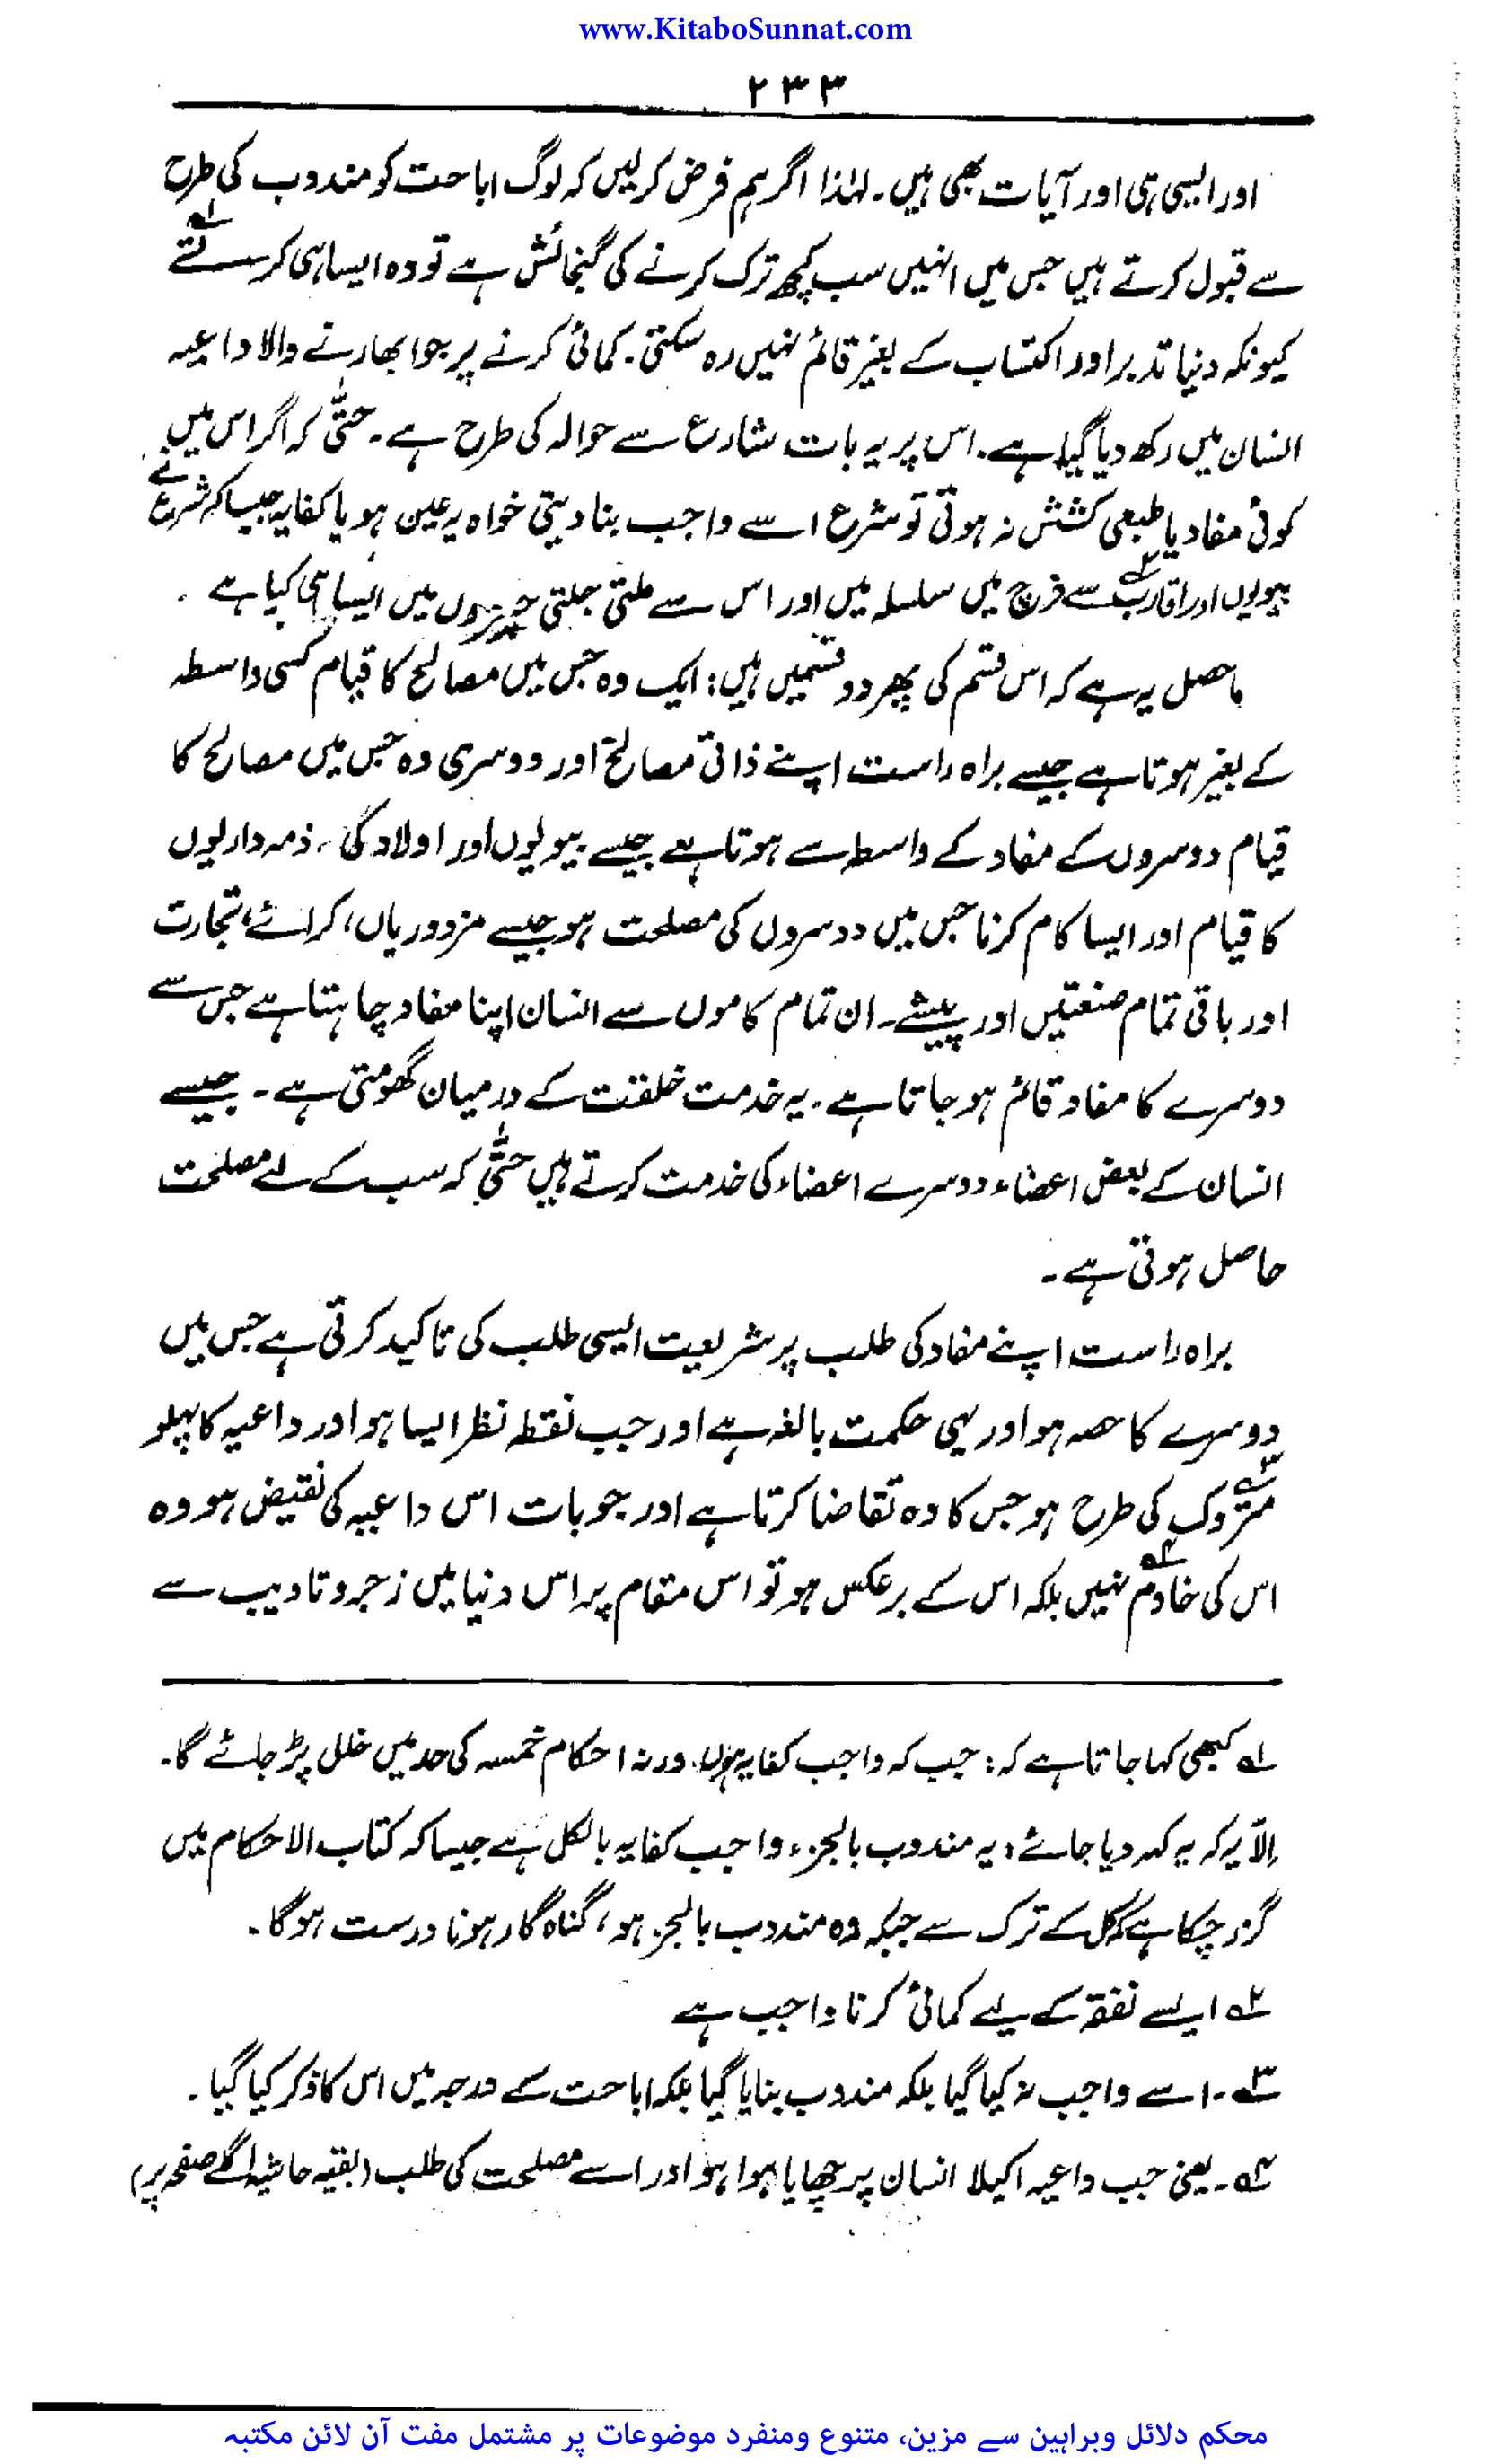 www.KitaboSunnat.com
۲۳۳
اور ایسی ہی اور آیات بھی ہیں۔ لہٰذا اگر ہم فرض کر لیں کہ لوگ اباحت کو مندوب کی طرح
سے قبول کرتے ہیں جس میں انہیں سب کچھ ترک کرنے کی گنجائش ہے تو وہ ایسا ہی کرسکتے ۱ے
کیونکہ دنیا تدبر اور اکتساب کے بغیر قائم نہیں رہ سکتی۔ کمائی کرنے پر جو ابھارنے والا داعیہ
انسان میں رکھ دیا گیا ہے۔ اس پر یہ بات شارع سے حوالہ کی طرح ہے۔ حتّٰی کہ اگر اس میں
کوئی مفاد یا طبعی کشش نہ ہوتی تو شرع اسے واجب بنا دیتی خواہ یہ عین ہو یا کفایہ جیسا کہ شرع نے
بیویوں اور اقارب ۲ے سے خرچ میں سلسلہ میں اور اس سے ملتی جلتی چیزوں میں ایسا ہی کیا ہے ۔
ماحصل یہ ہے کہ اس قسم کی پھر دو قسمیں ہیں: ایک وہ جس میں مصالح کا قیام کسی واسطہ
کے بغیر ہوتا ہے جیسے براہ راست اپنے ذاتی مصالح اور دوسری وہ جس میں مصالح کا
قیام دوسروں کے مفاد کے واسطہ سے ہوتا ہے جیسے بیویوں اور اولاد کی ذمہ داریوں
کا قیام اور ایسا کام کرنا جس میں دوسروں کی مصلحت ہو جیسے مزدوریاں، کرائے، تجارت
اور باقی تمام صنعتیں اور پیشے۔ ان تمام کاموں سے انسان اپنا مفاد چاہتا ہے جس سے
دوسرے کا مفاد قائم ہو جاتا ہے۔ یہ خدمت خلقت کے درمیان گھومتی ہے۔ جیسے
انسان کے بعض اعضاء دوسرے اعضاء کی خدمت کرتے ہیں حتّٰی کہ سب کے لئے مصلحت
حاصل ہوتی ہے۔
براہ راست اپنے مفاد کی طلب پر شریعت ایسی طلب کی تاکید کرتی ہے جس میں
دوسرے کا حصہ ہو اور یہی حکمت بالغہ ہے اور جب نقطہ نظر ایسا ہو اور داعیہ کا پہلو
متروک ۳ے کی طرح ہو جس کا وہ تقاضا کرتا ہے اور جو بات اس داعیہ کی نقیض ہو وہ
اس کی خادم ۴ے نہیں بلکہ اس کے برعکس ہو تو اس مقام پر اس دنیا میں زجر و تادیب سے
۱ے کبھی کہا جاتا ہے کہ: جب کہ واجب کفایہ ہوں۔ ورنہ احکام خمسہ کی حد میں خلل پڑ جائے گا۔
اِلّا یہ کہ یہ کہہ دیا جائے: یہ مندوب بالجزء واجب کفایہ بالکل ہے جیسا کہ کتاب الاحکام میں
گزر چکا ہے کُل کے ترک سے جبکہ وہ مندوب بالجزء ہو، گناہ گار ہونا درست ہوگا۔
۲ے ایسے نفقہ کے لیے کمائی کرنا واجب ہے
۳ے۔ اسے واجب نہ کیا گیا بلکہ مندوب بنایا گیا بلکہ اباحت کے درجہ میں اس کا ذکر کیا گیا۔
۴ے۔ یعنی جب داعیہ اکیلا انسان پر چھایا ہوا ہو اور اسے مصلحت کی طلب (بقیہ حاشیہ اگلے صفحہ پر)
محکم دلائل وبراہین سے مزین، متنوع ومنفرد موضوعات پر مشتمل مفت آن لائن مکتبہ